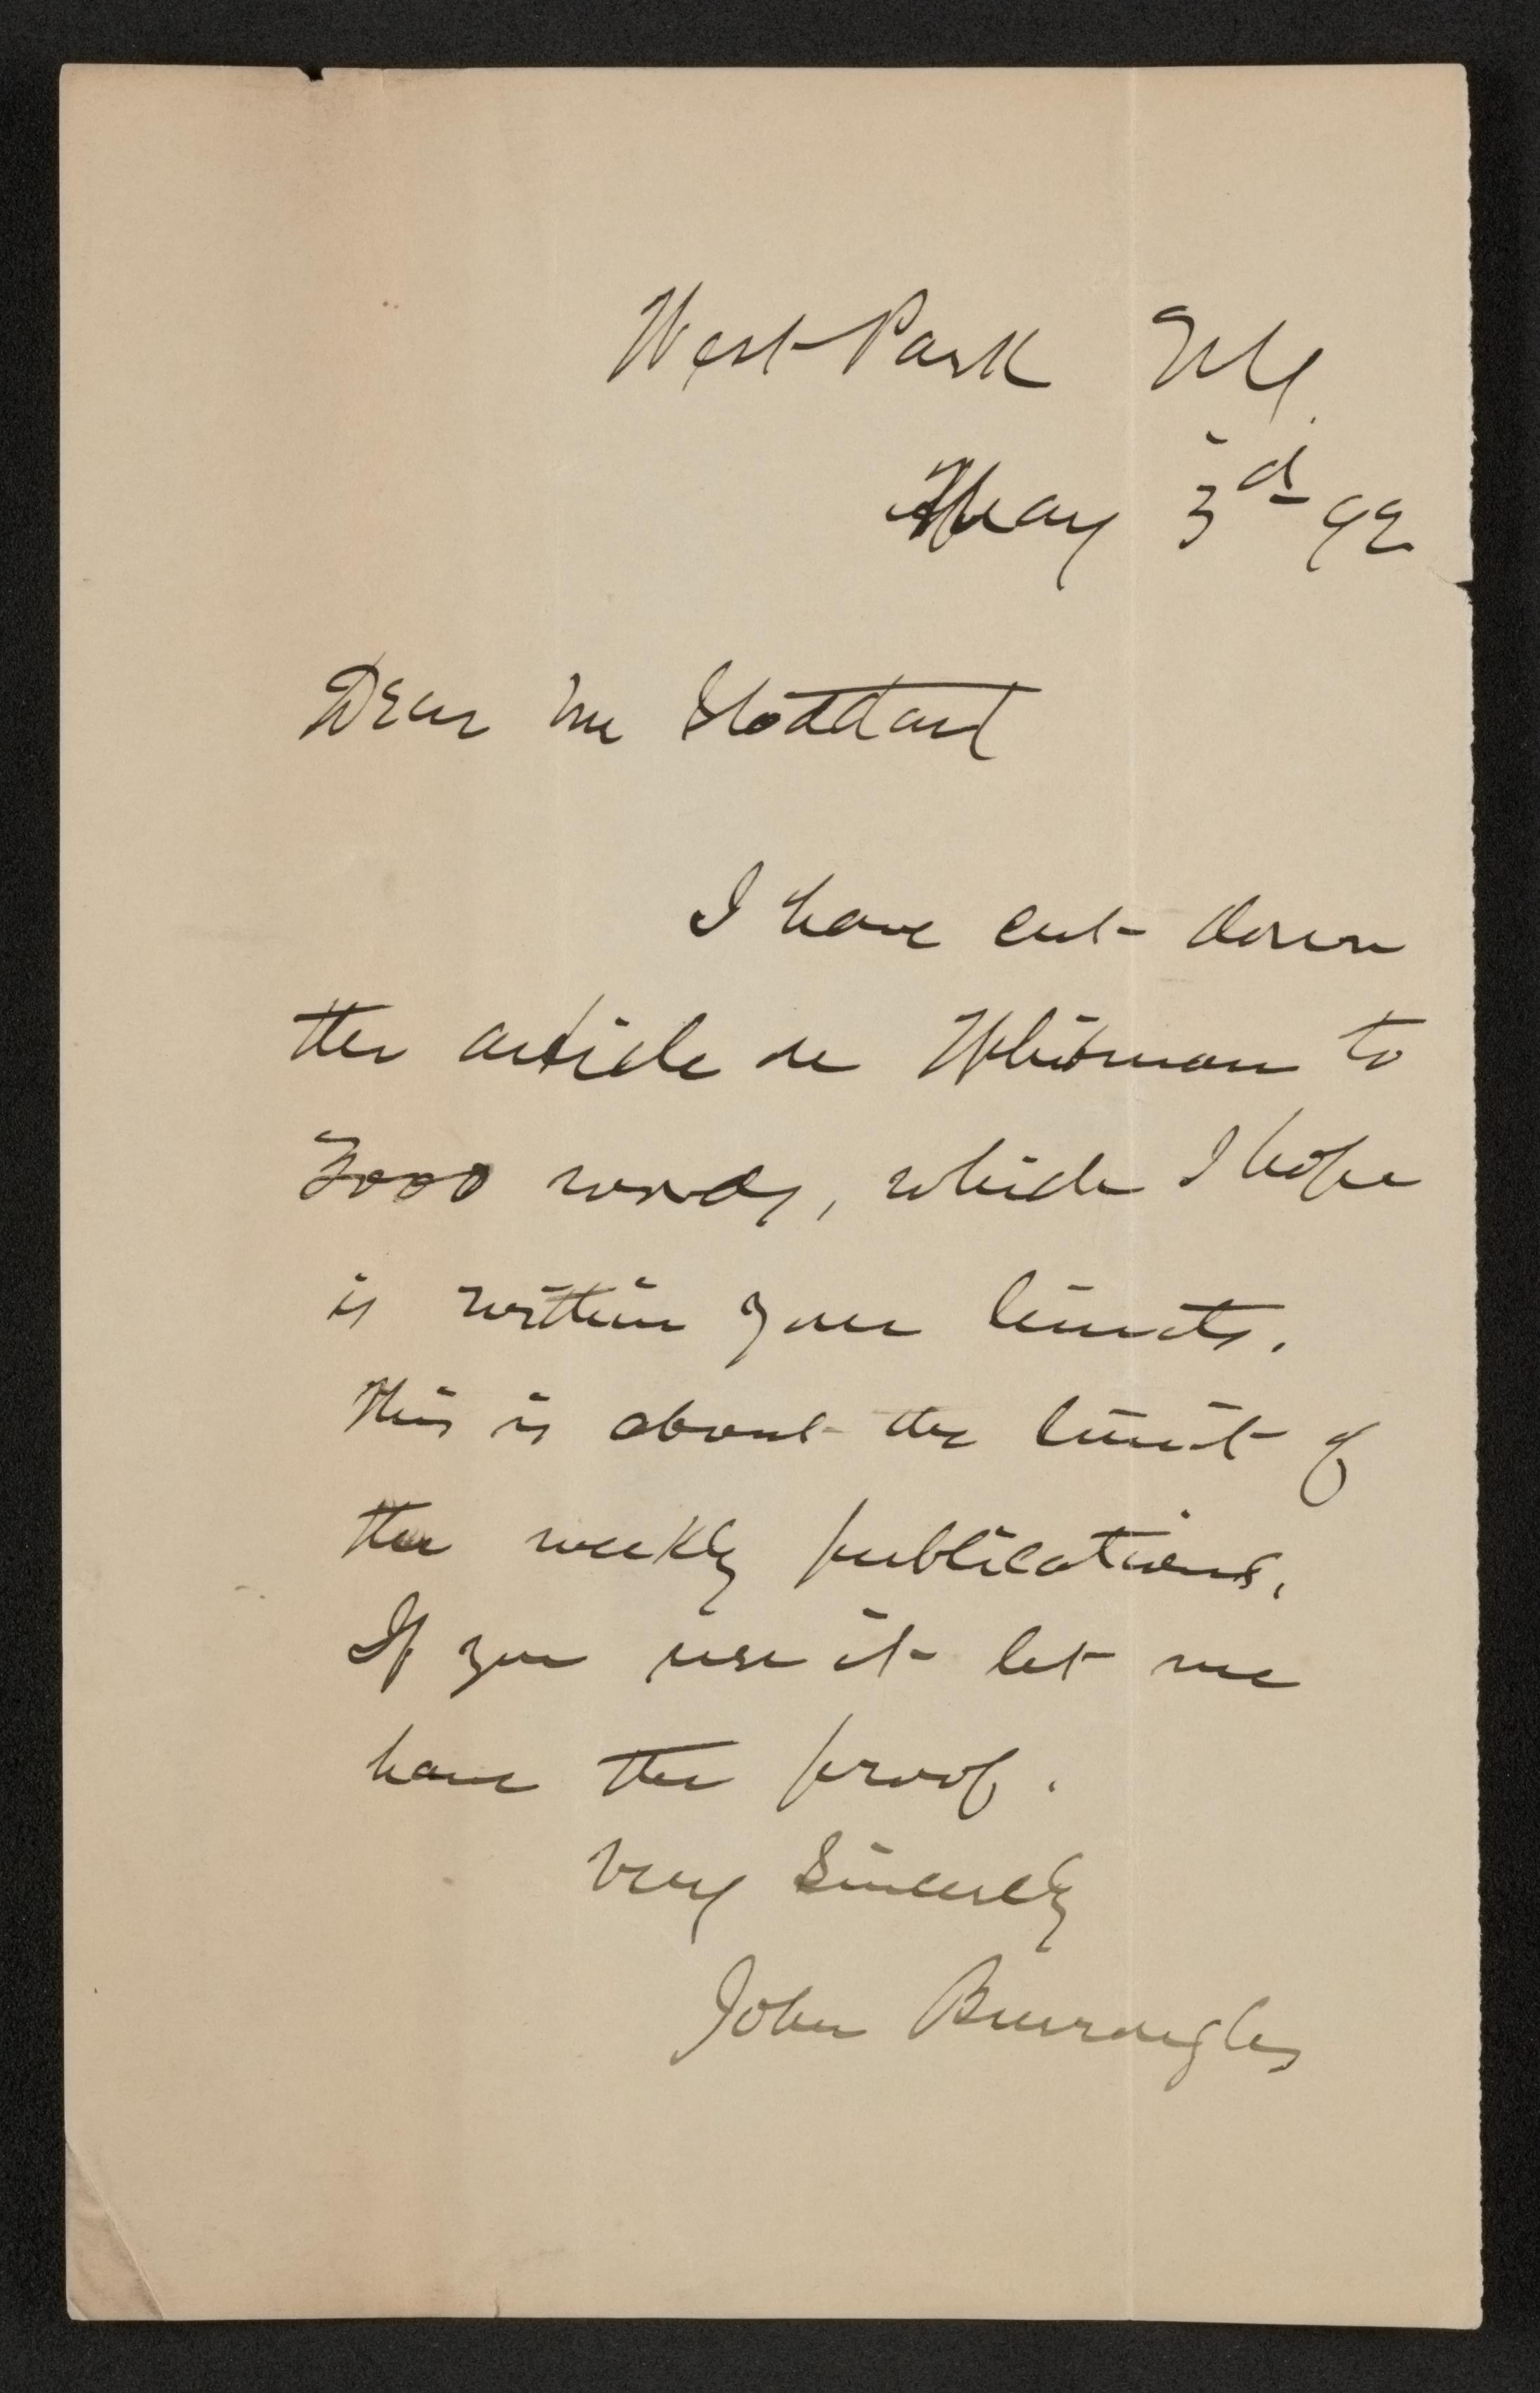 West Park N Y.
May 3d 92
Dear Mr Stoddart
I have cut down
the article on Whitman to
3000 words, which I hope
is within your limits.
This is about the limit of
the weekly publications.
If you use it let me
have the proof.
Very Sincerely
John Burroughs